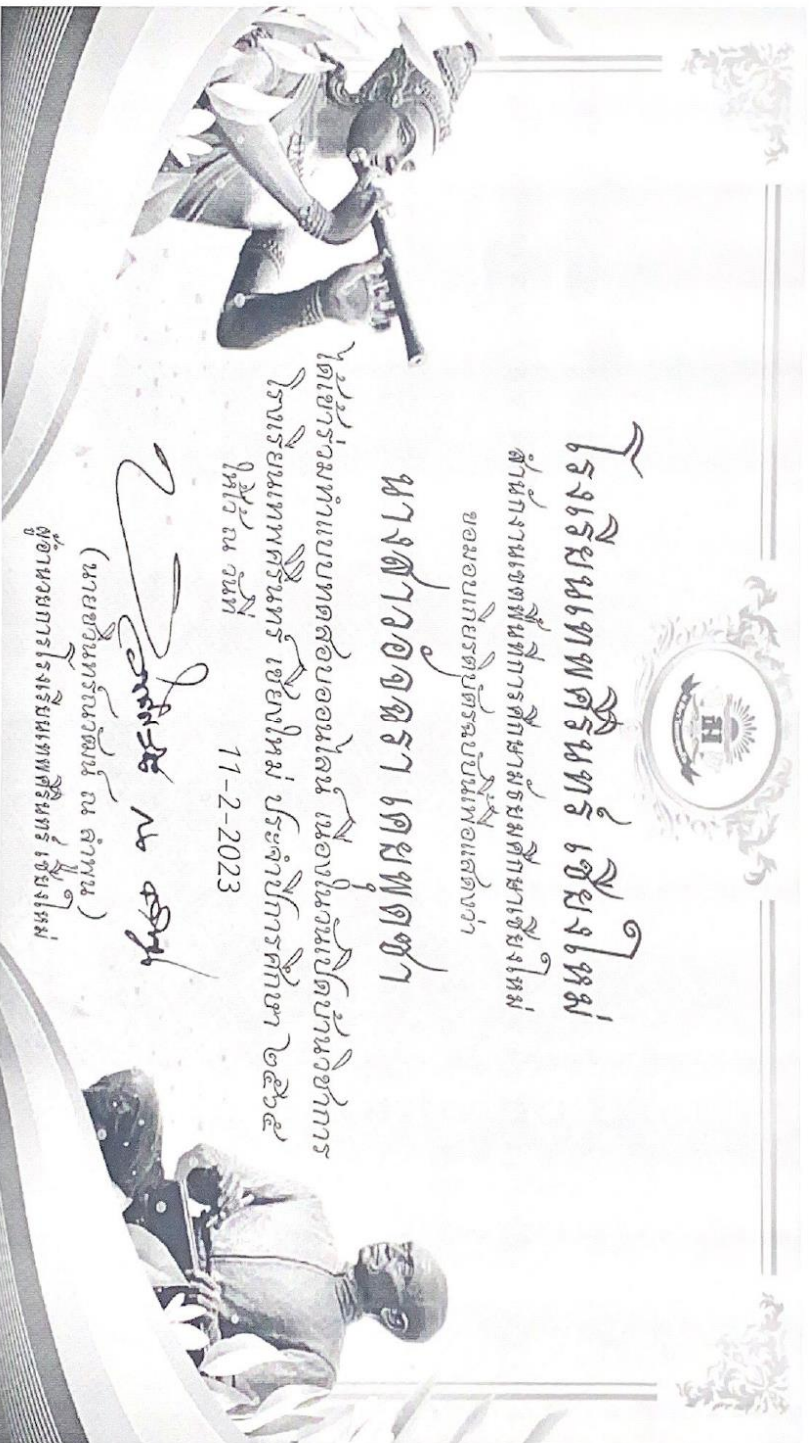 โรงเรียนเทพศิรินทร์ เชียงใหม่
สำนักงานเขตพื้นที่การศึกษามัธยมศึกษาเชียงใหม่
ขอมอบเกียรติบัตรฉบับนี้เพื่อแสดงว่า
นางสาวอัจฉรา เตมุฑุดชา
ได้เข้าร่วมทำแบบทดสอบออนไลน์ เนื่องในวันเปิดบ้านวิชาการ
โรงเรียนเทพศิรินทร์ เชียงใหม่ ประจำปีการศึกษา ๒๕๖๕
ให้ไว้ ณ วันที่ 11-2-2023
(นายชวินทร์ณวัฒน์ ณ ลำพูน)
ผู้อำนวยการโรงเรียนเทพศิรินทร์ เชียงใหม่